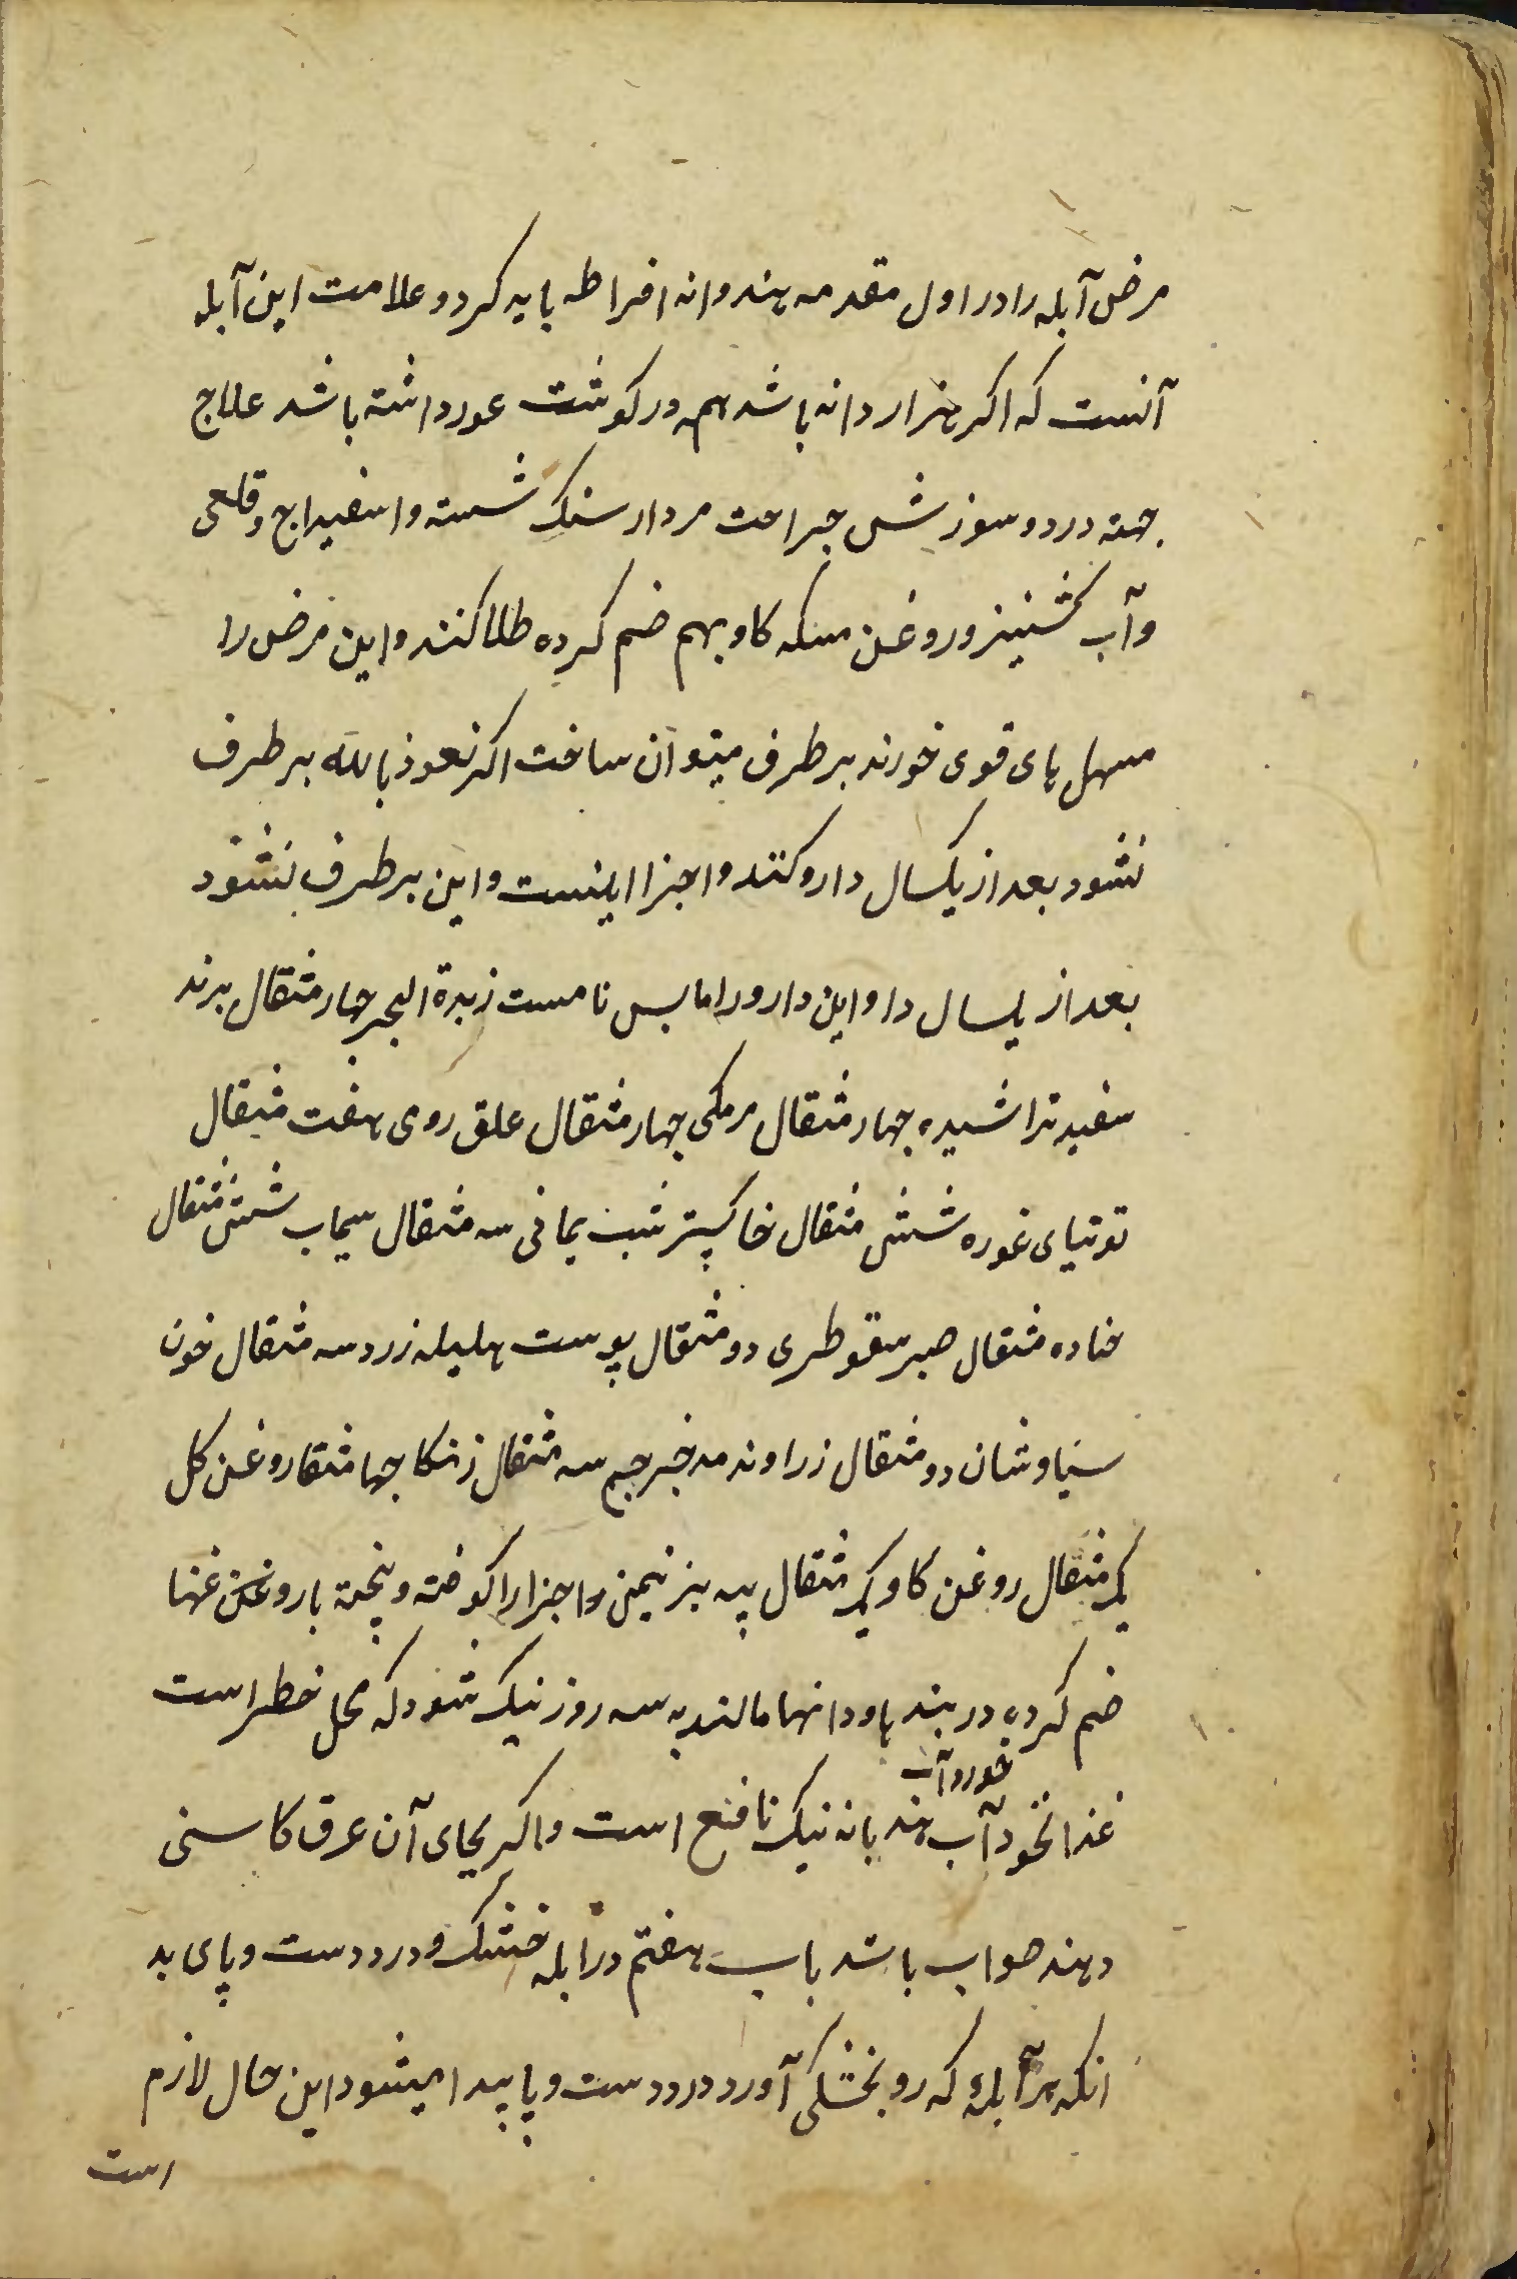 مرض آبله را در اول مقدمه هندوانه افراطه باید کرد و علامت این آبله
آنست که اکر هزار دانه باشد همه در کوشت عور داشته باشد علاج
جهته درد و سوزش جراحت مردار سنک شسته و اسفیداج و قلعی
و آب کشنیز و روغن مسکه کاو بهم ضم کرده طلا کنند و این مرض را
مسهل های قوی خورند برطرف میتوان ساخت اکر نعوذ بالله برطرف
نشود بعد از یکسال دارو کنند و اجزا اینست و این برطرف نشود
بعد از یلسال دا و این دارو را نامست زبدة البحر چهار مثقال برند
سفید تراشیده چهار مثقال مرمکی چهار مثقال علق رومی هفت مثقال
توتیای غوره شش مثقال خاکستر شب یمانی سه مثقال سیماب شش مثقال
حنا ده مثقال صبر سقوطری دو مثقال پوست هلیله زرد سه مثقال خون
سیاوشان دو مثقال زراوند مدخرجیم سه مثقال زنکا چهامثقا روغن کل
یک مثقال روغن کاو یک مثقال پیه بز نیمن و اجزا را کوفته و پخته با روغن غنها
ضم کرده در بند ها و دانها مالند به سه روز نیک شود که محل خطر است
غذا نخود آب خورد و آب هند بانه نیک نافع است و اکر بجای آن عرق کاسنی
دهند صواب باشد باب هفتم در آبله خشک و درد دست و پای بد
انکه هر آبلهٔ که رو بخشکی آورد درد دست و پا پیدا میشود این حال لازم
است